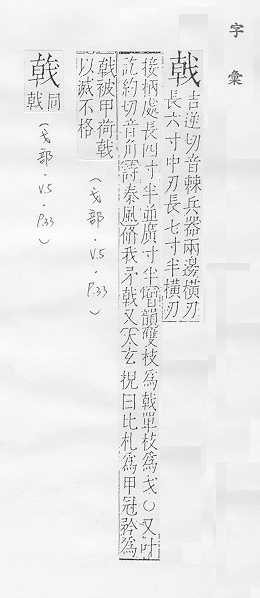 字彙
戟 吉逆切音棘兵器兩邊橫刃
長六寸中刃長七寸半橫刃
接柄處長四寸半並廣寸半增韻雙枝爲戟單枝爲戈○又叶
訖約切音角詩秦風脩我矛戟又太玄棿曰比札爲甲冠矜爲
戟被甲荷戟
以滅不格
(戈部.V.5.P.33)
𢧢 同
戟
(戈部.V.5.P.33)